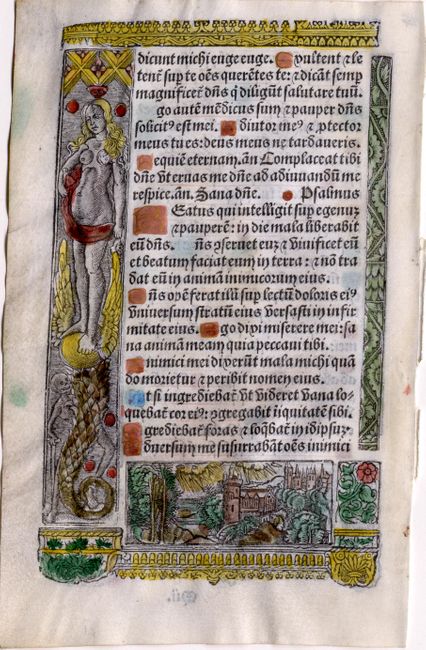 dicunt michi euge euge. Exultent & le
tent̃ sup te oẽs querẽtes te: & dicãt semp
magnificet̃ dñs q̃ diligũt salutare tuũ.
Ego autẽ mẽdicus sum & pauper dñs
solicitꝰ est mei. Adiutor meꝰ & ꝓtector
meus tu es: deus meus ne tardaueris.
Requiẽ eternam. añ Complaceat tibi
dñe vt eruas me dñe ad adiuuandũ me
respice. añ. Sana dñe. Psalmus
Beatus qui intelligit sup egenuꝫ
& pauperẽ: in die mala liberabit
eũ dñs. Dñs ꝯseruet euꝫ & viuificet eũ
et beatum faciat eum in terra: & nõ tra
dat eũ in animã inimicorum eius.
Dñs opẽ ferat illi sup lectũ doloris eiꝰ
vniuersum stratũ eius versasti in infir
mitate eius. Ego dixi miserere mei: sa
na animã meam quia peccaui tibi.
Inimici mei dixerũt mala michi quã
do morietur & peribit nomen eius.
Et si ingrediebat̃ vt videret vana lo-
quebat̃ cor eiꝰ: ꝯgregabit iniquitatẽ sibi.
Egrediebat̃ foras & loq̃bat̃ in idipsuꝫ.
Aduersum me susurrabant oẽs inimici